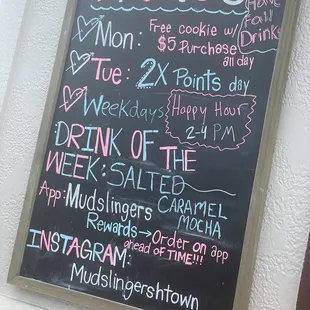 Have
Fall
Drinks
Mon: Free cookie w/
$5 Purchase
all day
Tue: 2X Points day
Weekdays Happy Hour
2-4 PM
DRINK OF THE
WEEK: SALTED
CARAMEL
MOCHA
App: Mudslingers
Rewards → Order on app
ahead of TIME!!!
INSTAGRAM:
Mudslingershtown